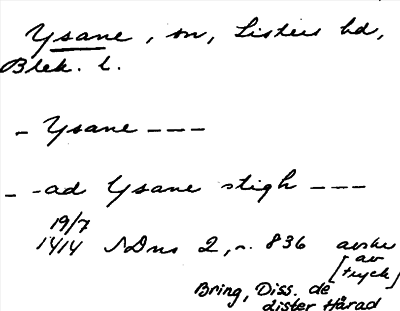 Ysane, sn, Listers hd,
Blek. l.
- Ysane - - -
- - ad Ysane stigh - - -
19/7
1414 SDns 2, n. 836 avskr
[av
tryck]
Bring, Diss. de
Lister Härad